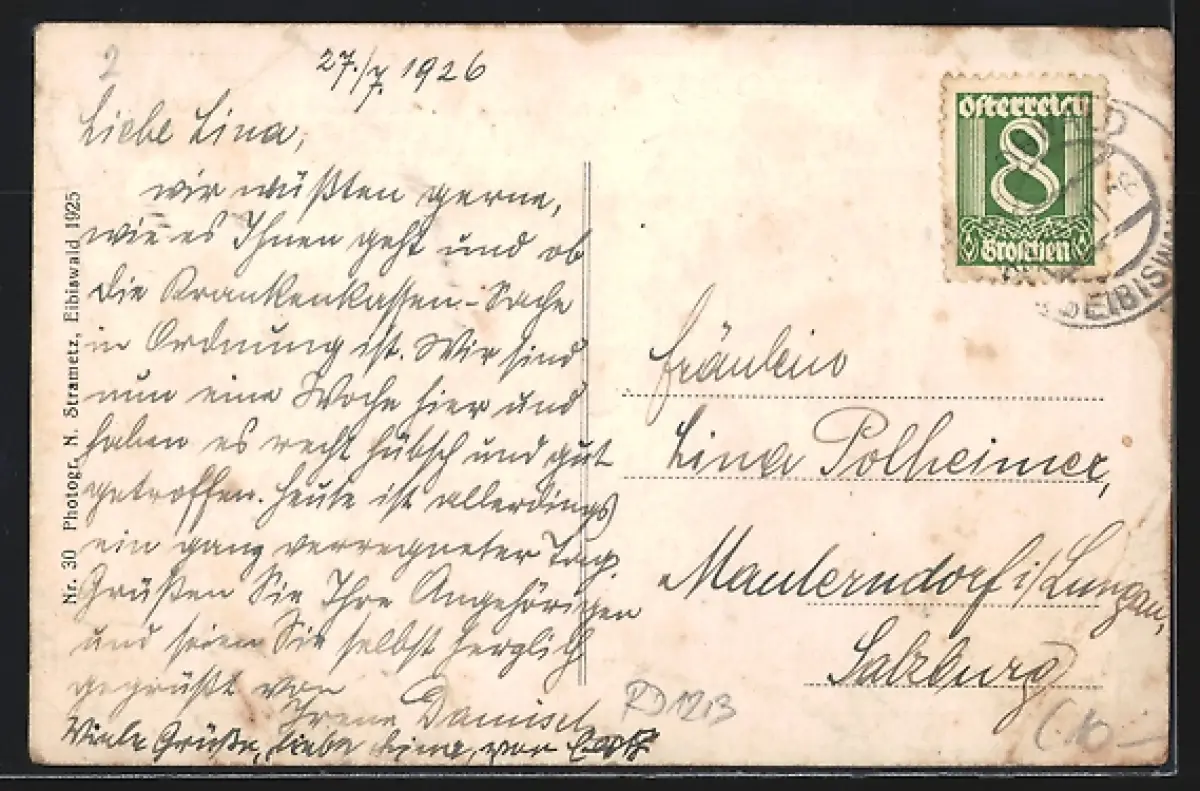 2
27./7. 1926
Liebe Lina,
wir wüßten gerne,
wie es Ihnen geht und ob
die Krankenkassen-Sache
in Ordnung ist. Wir sind
nun eine Woche hier und
haben es recht hübsch und gut
getroffen. Heute ist allerdings
ein ganz verregneter Tag.
Grüßen Sie Ihre Angehörigen
und seien Sie selbst herzlich
gegrüßt von
Irene Damisch
Viele Grüße, liebe Lina, von
Nr. 30 Photogr. N. Strametz, Eibiswald 1925
Österreich
8
Groschen
EIBISW
Fräulein
Lina Polheimer,
Mauterndorf i/Lungau,
Salzburg